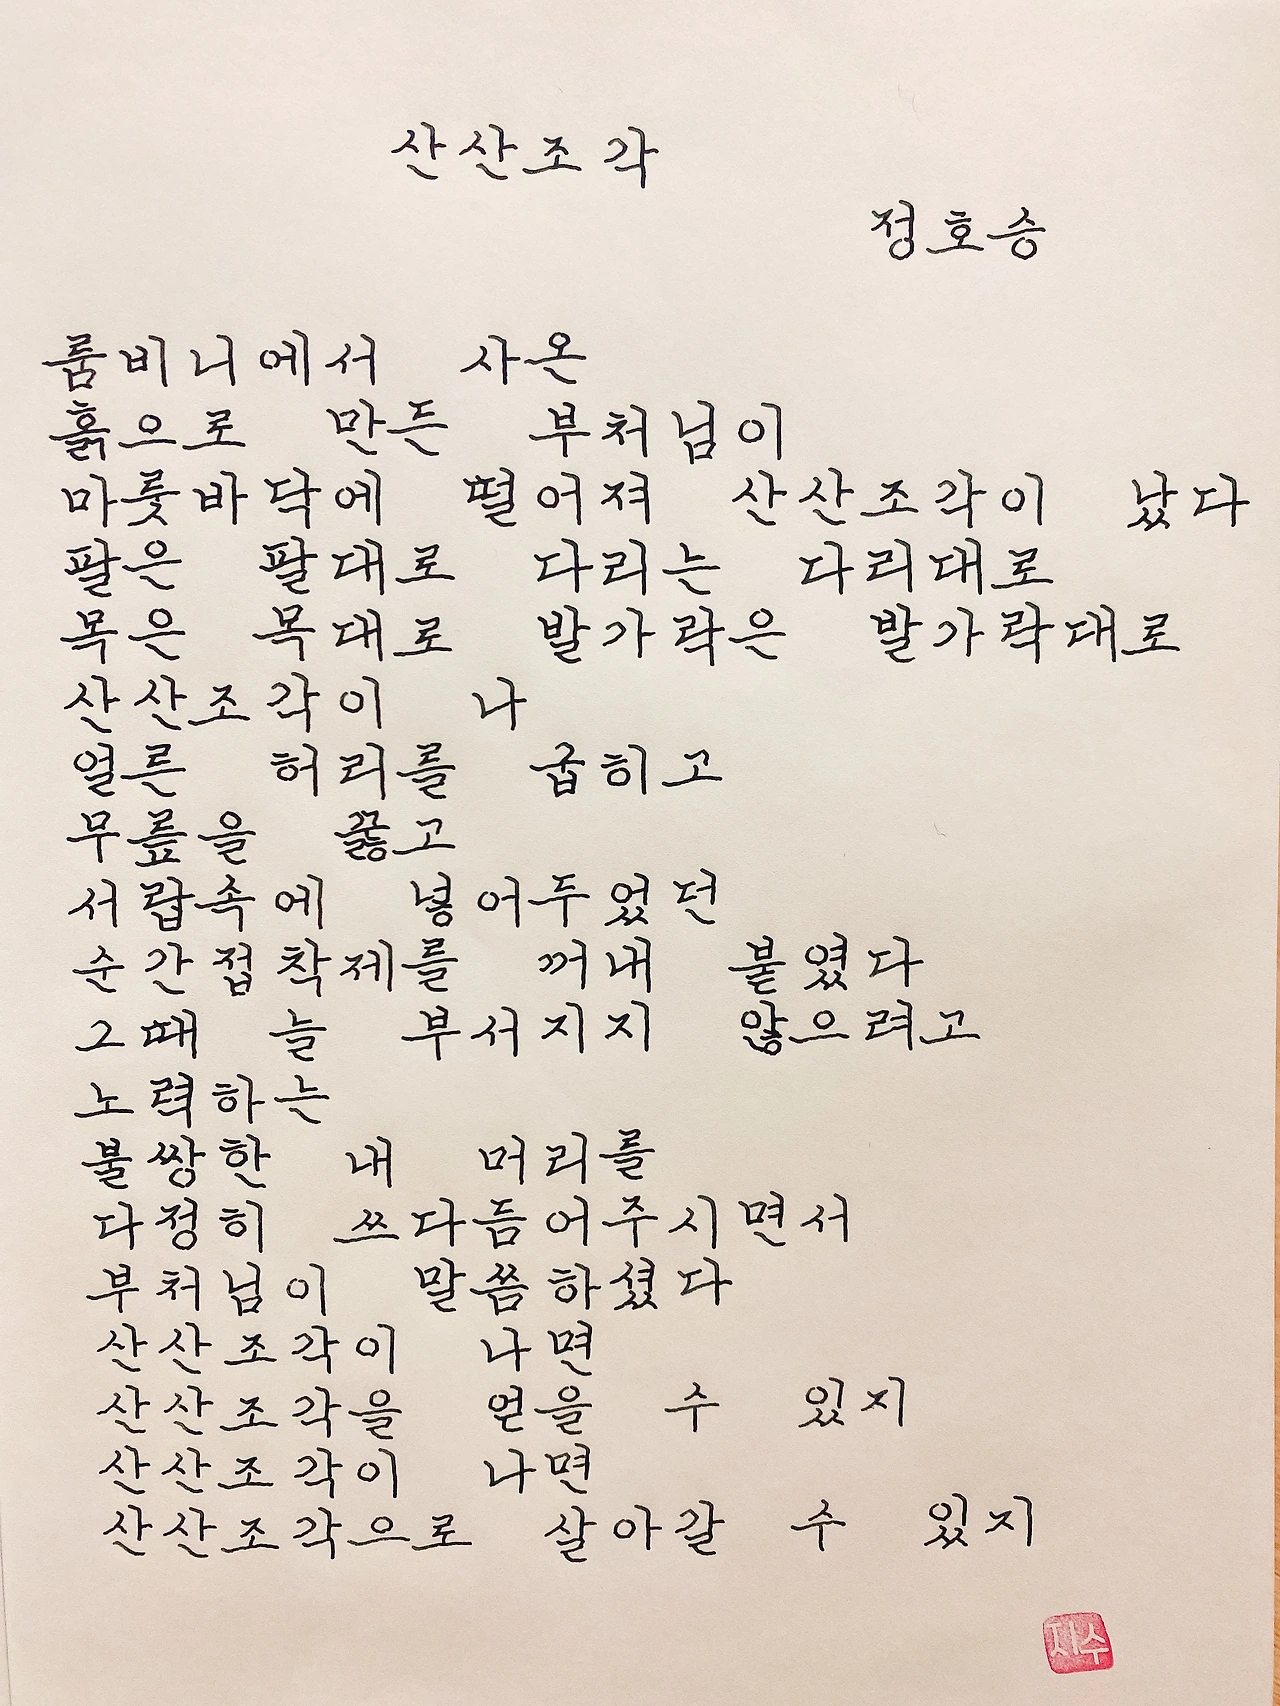 산산조각
정호승
룸비니에서 사온
흙으로 만든 부처님이
마룻바닥에 떨어져 산산조각이 났다
팔은 팔대로 다리는 다리대로
목은 목대로 발가락은 발가락대로
산산조각이 나
얼른 허리를 굽히고
무릎을 꿇고
서랍속에 넣어두었던
순간접착제를 꺼내 붙였다
그때 늘 부서지지 않으려고
노력하는
불쌍한 내 머리를
다정히 쓰다듬어주시면서
부처님이 말씀하셨다
산산조각이 나면
산산조각을 얻을 수 있지
산산조각이 나면
산산조각으로 살아갈 수 있지
지수